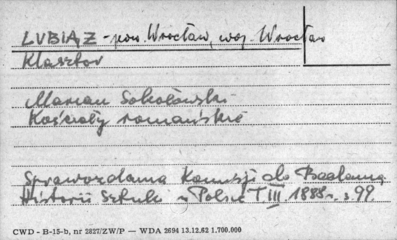 LUBIĄŻ - pow. Wrocław, woj. Wrocław
Klasztor
Marian Sokołowski
Kościoły romańskie
Sprawozdania Komisji do Badania
Historii Sztuki w Polsce T. III. 1888 r. s. 99
CWD - B-15-b, nr 2827/ZW/P — WDA 2694 13.12.62 1.700.000